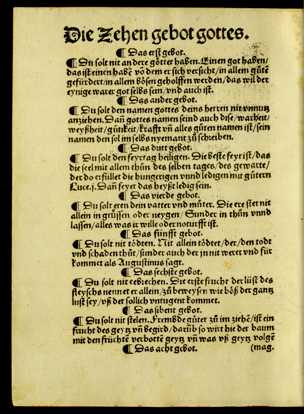 Die Zehen gebot gottes.
¶ Das erst gebot.
¶ Du solt nit andere götter haben. Einen got haben/
das ist einen habē vō dem er sich versicht/ in allem gůtē
gefürdert/ in allem bösen geholffen werden/ das wil der
eynige ware got selbs sein/ vnd auch ist.
¶ Das ander gebot.
¶ Du solt den namen gottes deins herren nit vnnutz
anziehen. Dañ gottes namen seind auch dise/ warheit/
weyßheit/ gütikeit/ krafft vñ alles gůten namen ist/ sein
namen den sol im selbs nyemant zů schreiben.
¶ Das dritt gebot.
¶ Du solt den feyrtag heiligen. Die beste feyr ist/ das
die seel mit allem thůn des selben tages/ des gewarte/
der do erfüllet die hungerigen vnnd ledigen mit gůtern
Luce.j. Dañ feyer das heyßt ledig sein.
¶ Das vierde gebot.
¶ Du solt eren dein vatter vnd můter. Die ere stet nit
allein in grüssen oder neygen/ Sunder in thůn vnnd
lassen/ alles was ir wille oder noturfft ist.
¶ Das fünfft gebot.
¶ Du solt nit tödten. Nit allein tödtet/ der/ den todt
vnd schaden thůt/ sunder auch der jn nit weret vnd für
kommet als Augustinus sagt.
¶ Das sechste gebot.
¶ Du solt nit eebrechen. Die erste frucht der lüst des
fleyschs nennet er allein/ zů beweysen wie böß der gantz
lust sey/ vß der sollich vntugent kommet.
¶ Das sibent gebot.
¶ Du solt nit stelen. Frembde gůter zů im ziehē/ ist ein
frucht des geytz vñ begird/ darüb so würt hie der baum
mit den früchtē verbottē geytz vñ was vß geytz volgē
¶ Das acht gebot. (mag.